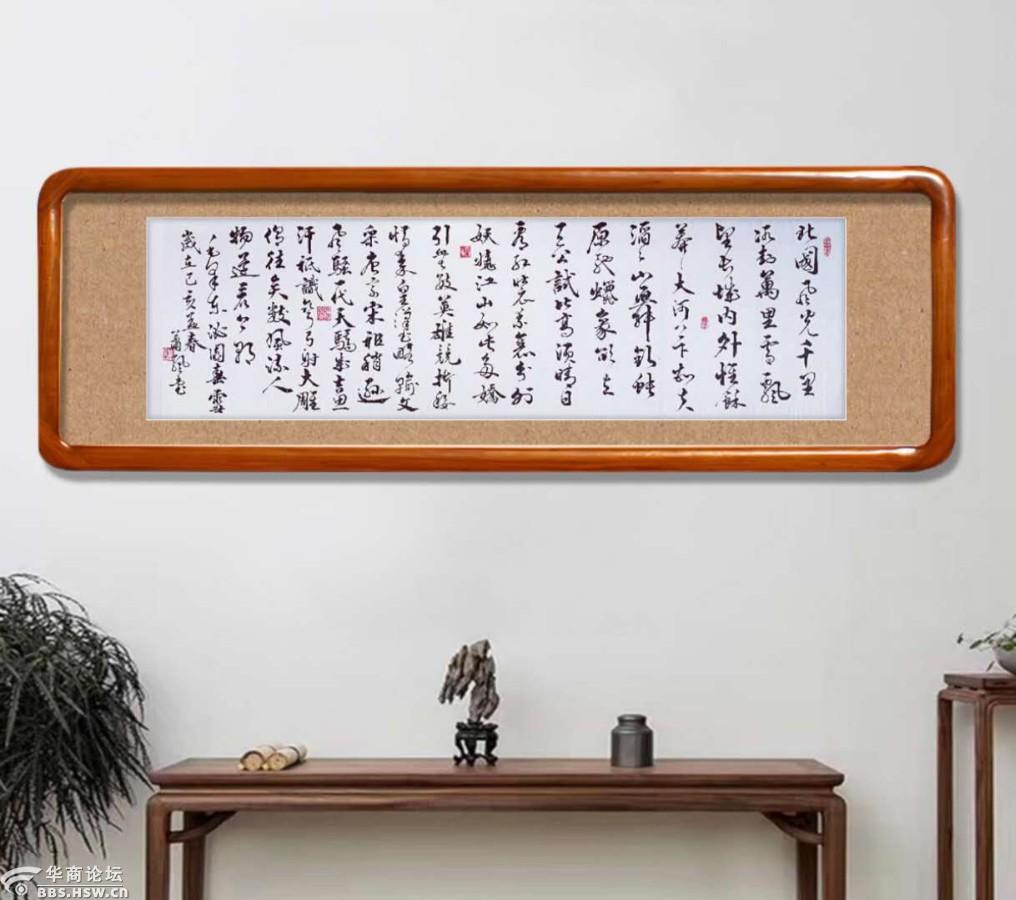 北國風光千里
冰封萬里雪飄
望長城內外惟餘
莽莽大河上下頓失
滔滔山舞銀蛇
原馳蠟象欲與
天公試比高須晴日
看紅裝素裹分外
妖嬈江山如此多嬌
引無數英雄競折腰
惜秦皇漢武略輸文
采唐宗宋祖稍遜
風騷一代天驕成吉思
汗祇識彎弓射大雕
俱往矣數風流人
物還看今朝
毛澤東沁園春雪
歲在己亥孟春
书
华商论坛
BBS.HSW.CN